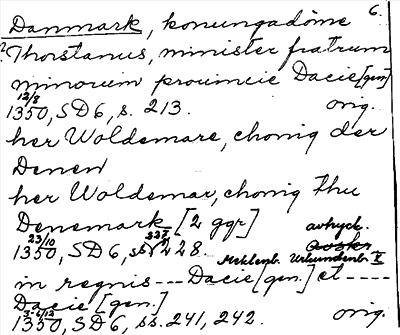 Danmark, konungadöme 6.
? Thorstanus, minister fratrum
minorum prouincie Dacie [gen]
12/8
1350, SD6, s. 213. orig.
her Woldemare, chonig der
Denen
her Woldemar, chonig thu
Denemark [2 ggr] avtryck.
23/10 227
1350, SD6, ss 228. Avskr.
Meklenb. Urkundenb. X
in regnis --- Dacie [gen.] et ----
Dacie [gen.]
3-6/12
1350, SD6, ss. 241, 242. orig.